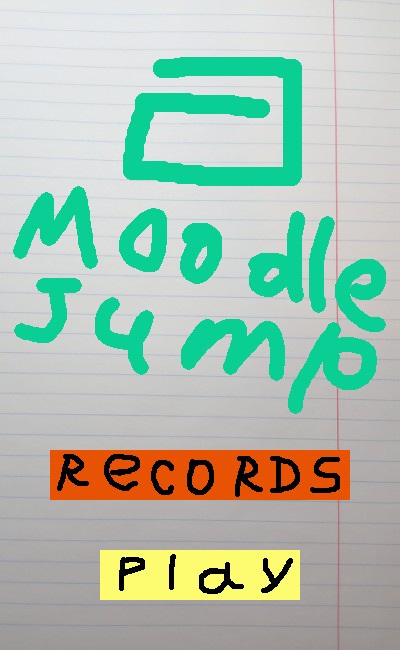 Moodle
Jump
RecORDS
Play